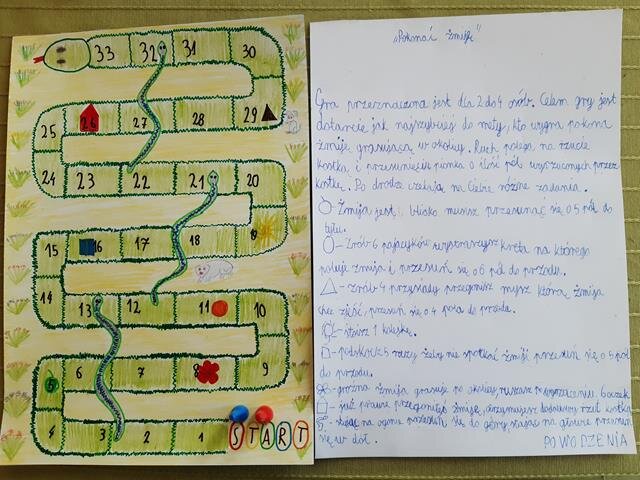 33 32 31 30
25 26 27 28 29
24 23 22 21 20
15 16 17 18
14 13 12 11 10
5 6 7 8 9
4 3 2 1 START
„Pokonać żmiję"
Gra przeznaczona jest dla 2 do 4 osób. Celem gry jest
dotarcie jak najszybciej do mety, kto wygra pokona
żmiję grasującą w okolicy. Ruch polega na rzucie
kostką i przesunięciu pionka o ilość pól wyrzuconych przez
kostkę. Po drodze czekają na Ciebie różne zadania.
- Żmija jest blisko musisz przesunąć się o 5 pól do
tyłu.
- Zrób 6 pajacyków wystraszysz kreta na którego
poluje żmija i przesuń się o 6 pól do przodu.
- zrób 4 przysiady przegonisz mysz którą żmija
chce zjeść, przesuń się o 4 pola do przodu.
- stoisz 1 kolejkę.
- podskocz 5 razy żeby nie spotkać żmiji przesuń się o 5 pól
do przodu.
- groźna żmija grasuje po okolicy, ruszasz po wyrzuceniu 6 oczek
- już prawie przegoniłeś żmiję, otrzymujesz dodatkowy rzut kostką
na ogonie przesuń się do góry, stając na głowie przesuń
się w dół.
POWODZENIA